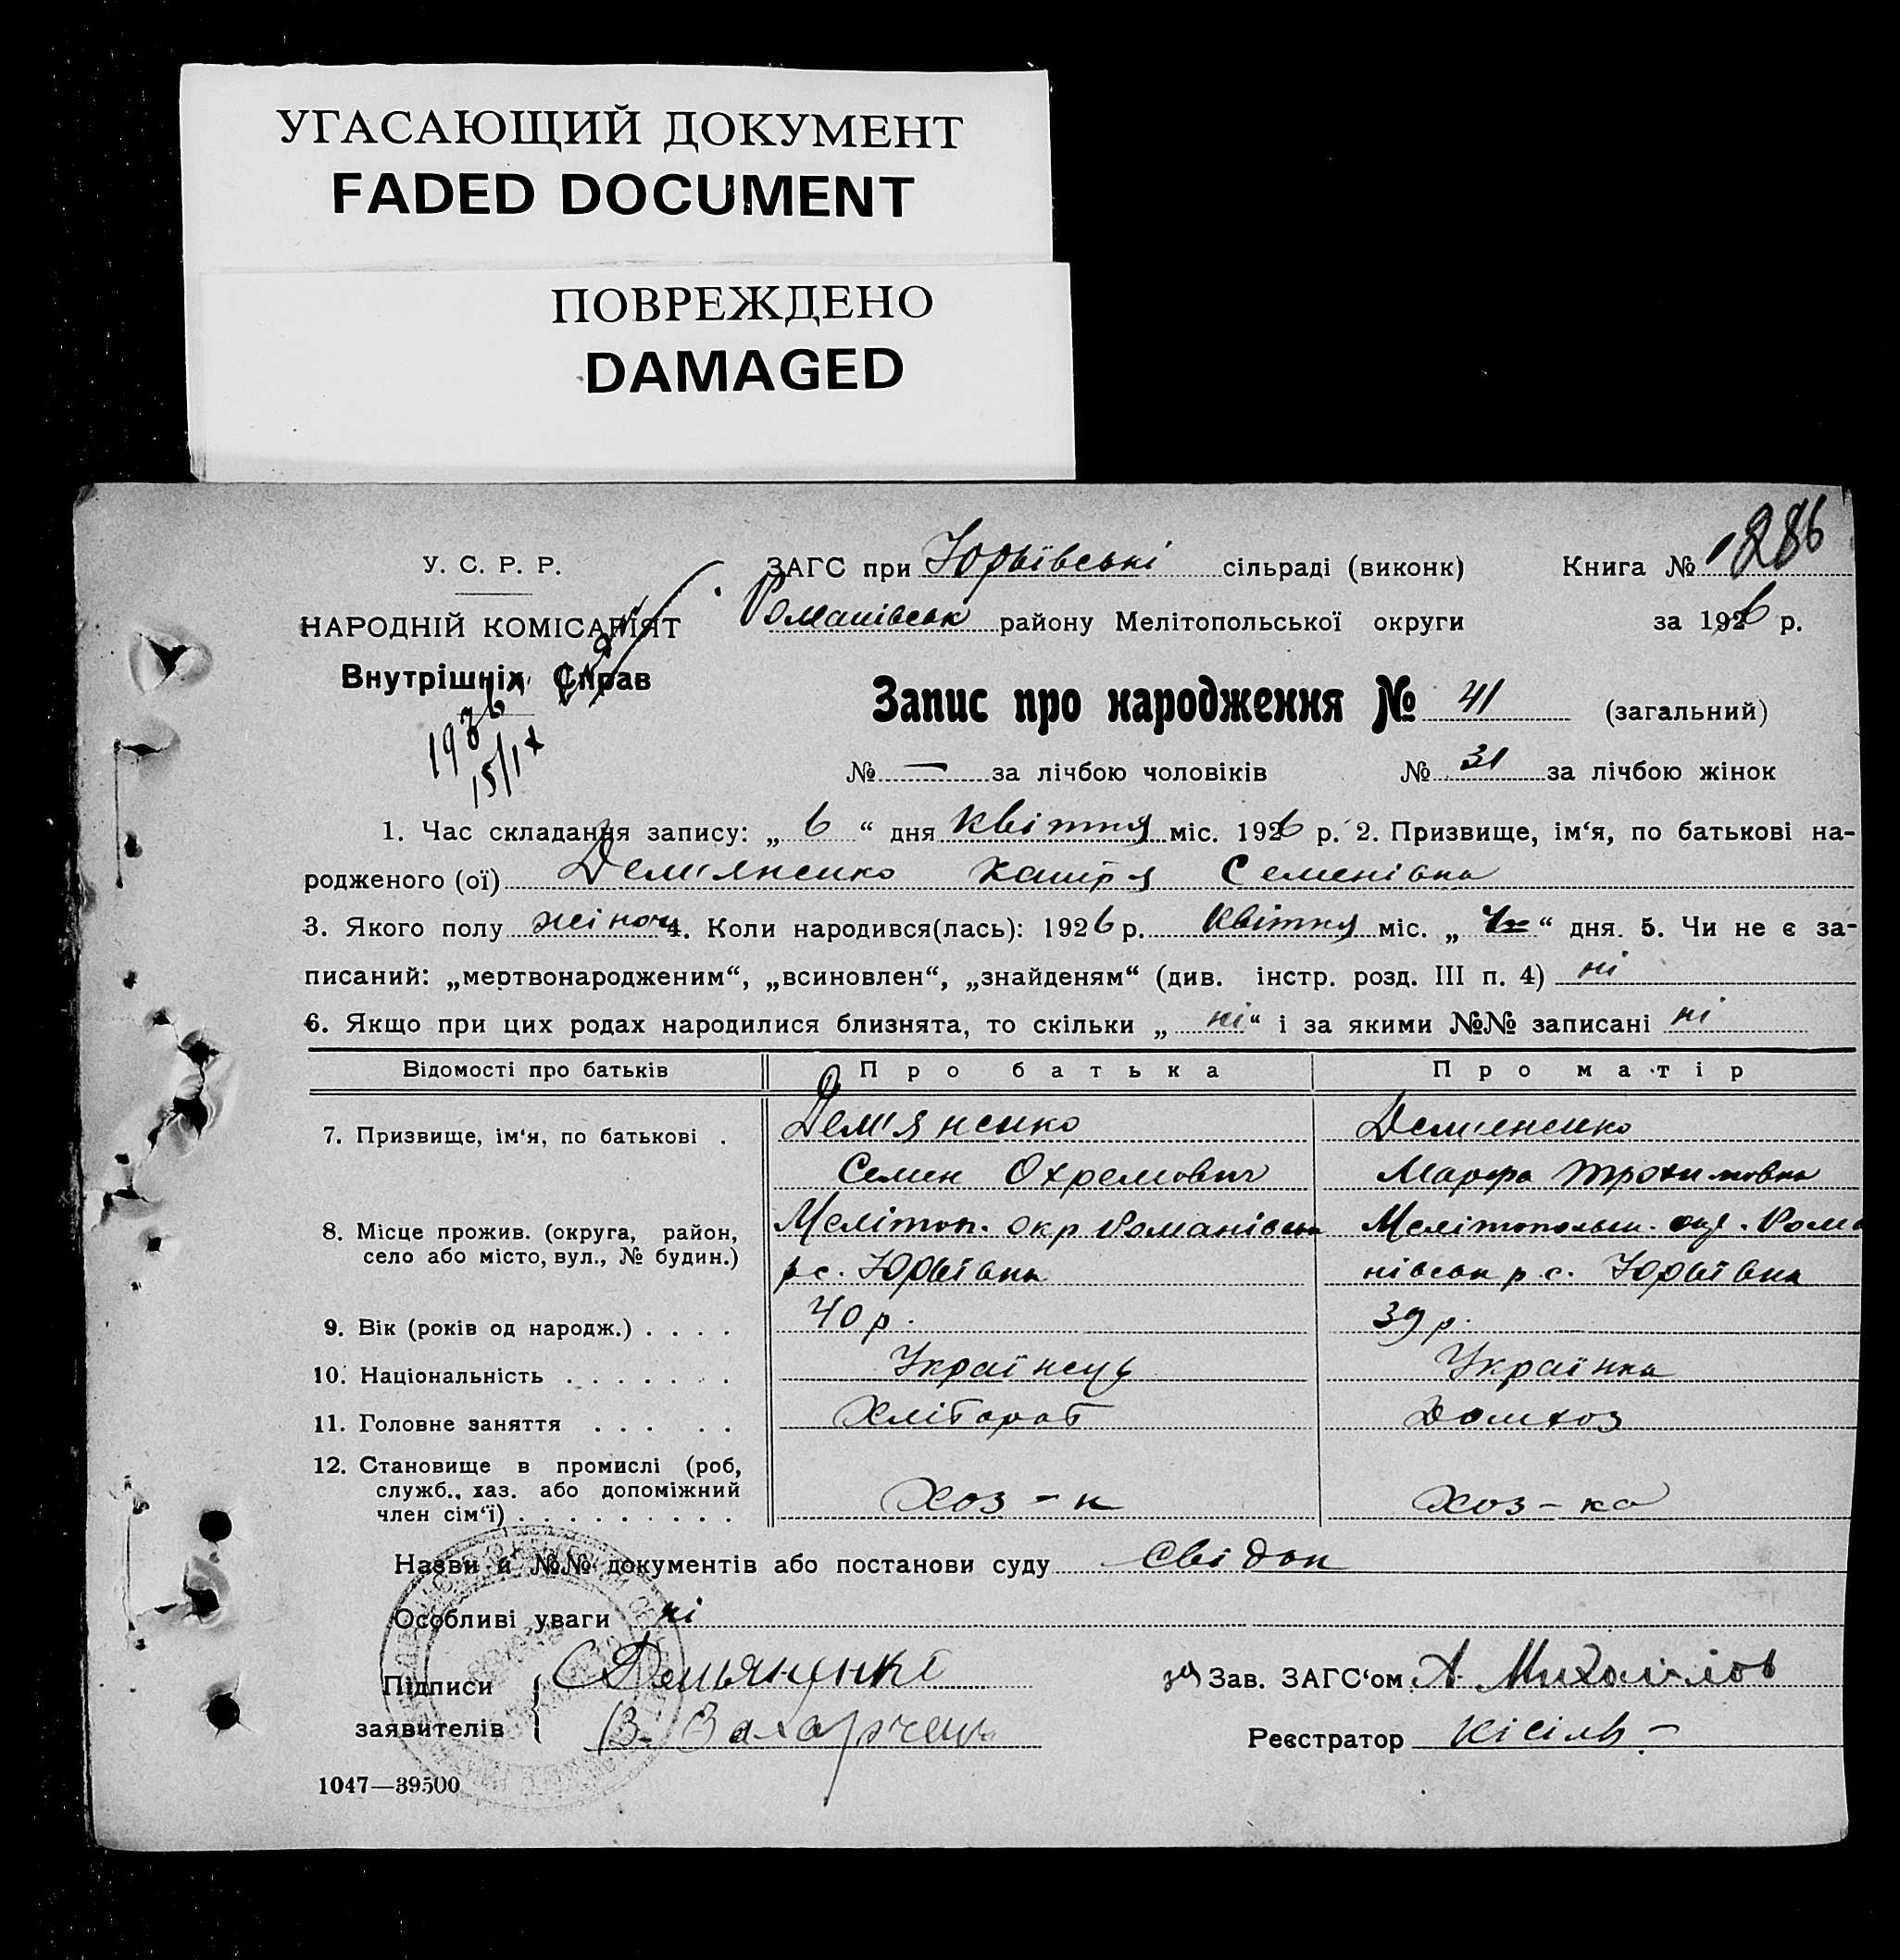 УГАСАЮЩИЙ ДОКУМЕНТ
FADED DOCUMENT
ПОВРЕЖДЕНО
DAMAGED
286
У. С. Р. Р.
НАРОДНІЙ КОМІСАРІЯТ
Внутрішніх Справ
1936
15/IX
ЗАГС при Юрьївські сільраді (виконк) Книга № 1
Романівськ району Мелітопольської округи за 1926 р.
Запис про народження № 41 (загальний)
№ — за лічбою чоловіків № 31 за лічбою жінок
1. Час складання запису: „ 6 “ дня квітня міс. 1926 р. 2. Призвище, ім‘я, по батькові на-
родженого (ої) Дем'яненко Катря Семенівна
3. Якого полу жіноч 4. Коли народився(лась): 1926 р. квітня міс. „ “ дня. 5. Чи не є за-
писаний: „мертвонародженим“, „всиновлен“, „знайденям“ (див. інстр. розд. III п. 4) ні
6. Якщо при цих родах народилися близнята, то скільки „ ні “ і за якими №№ записані ні
Відомості про батьків Про батька Про матір
7. Призвище, ім‘я, по батькові . Дем'яненко Дем'яненко
Семен Охремович Марфа Трохимовна
8. Місце прожив. (округа, район, село або місто, вул., № будин.) Мелітоп. окр Романівськ Мелітопольськ. окр. Рома
р с. Юрьївка нівськ р. с. Юрьївка
9. Вік (років од народж.) . . . . 40 р. 39 р.
10. Національність . . . . . . . Українець Українка
11. Головне заняття . . . . . Хлібороб Домхоз
12. Становище в промислі (роб, служб., хаз. або допоміжний член сім‘ї) . . . . . . . . . Хоз-н Хоз-ка
Назви й №№ документів або постанови суду Свідок
Особливі уваги ні
Підписи заявителів { С Демьяненко за Зав. ЗАГС‘ом А. Михайлов
В. Захарчен Реєстратор Кісіль
1047—39500